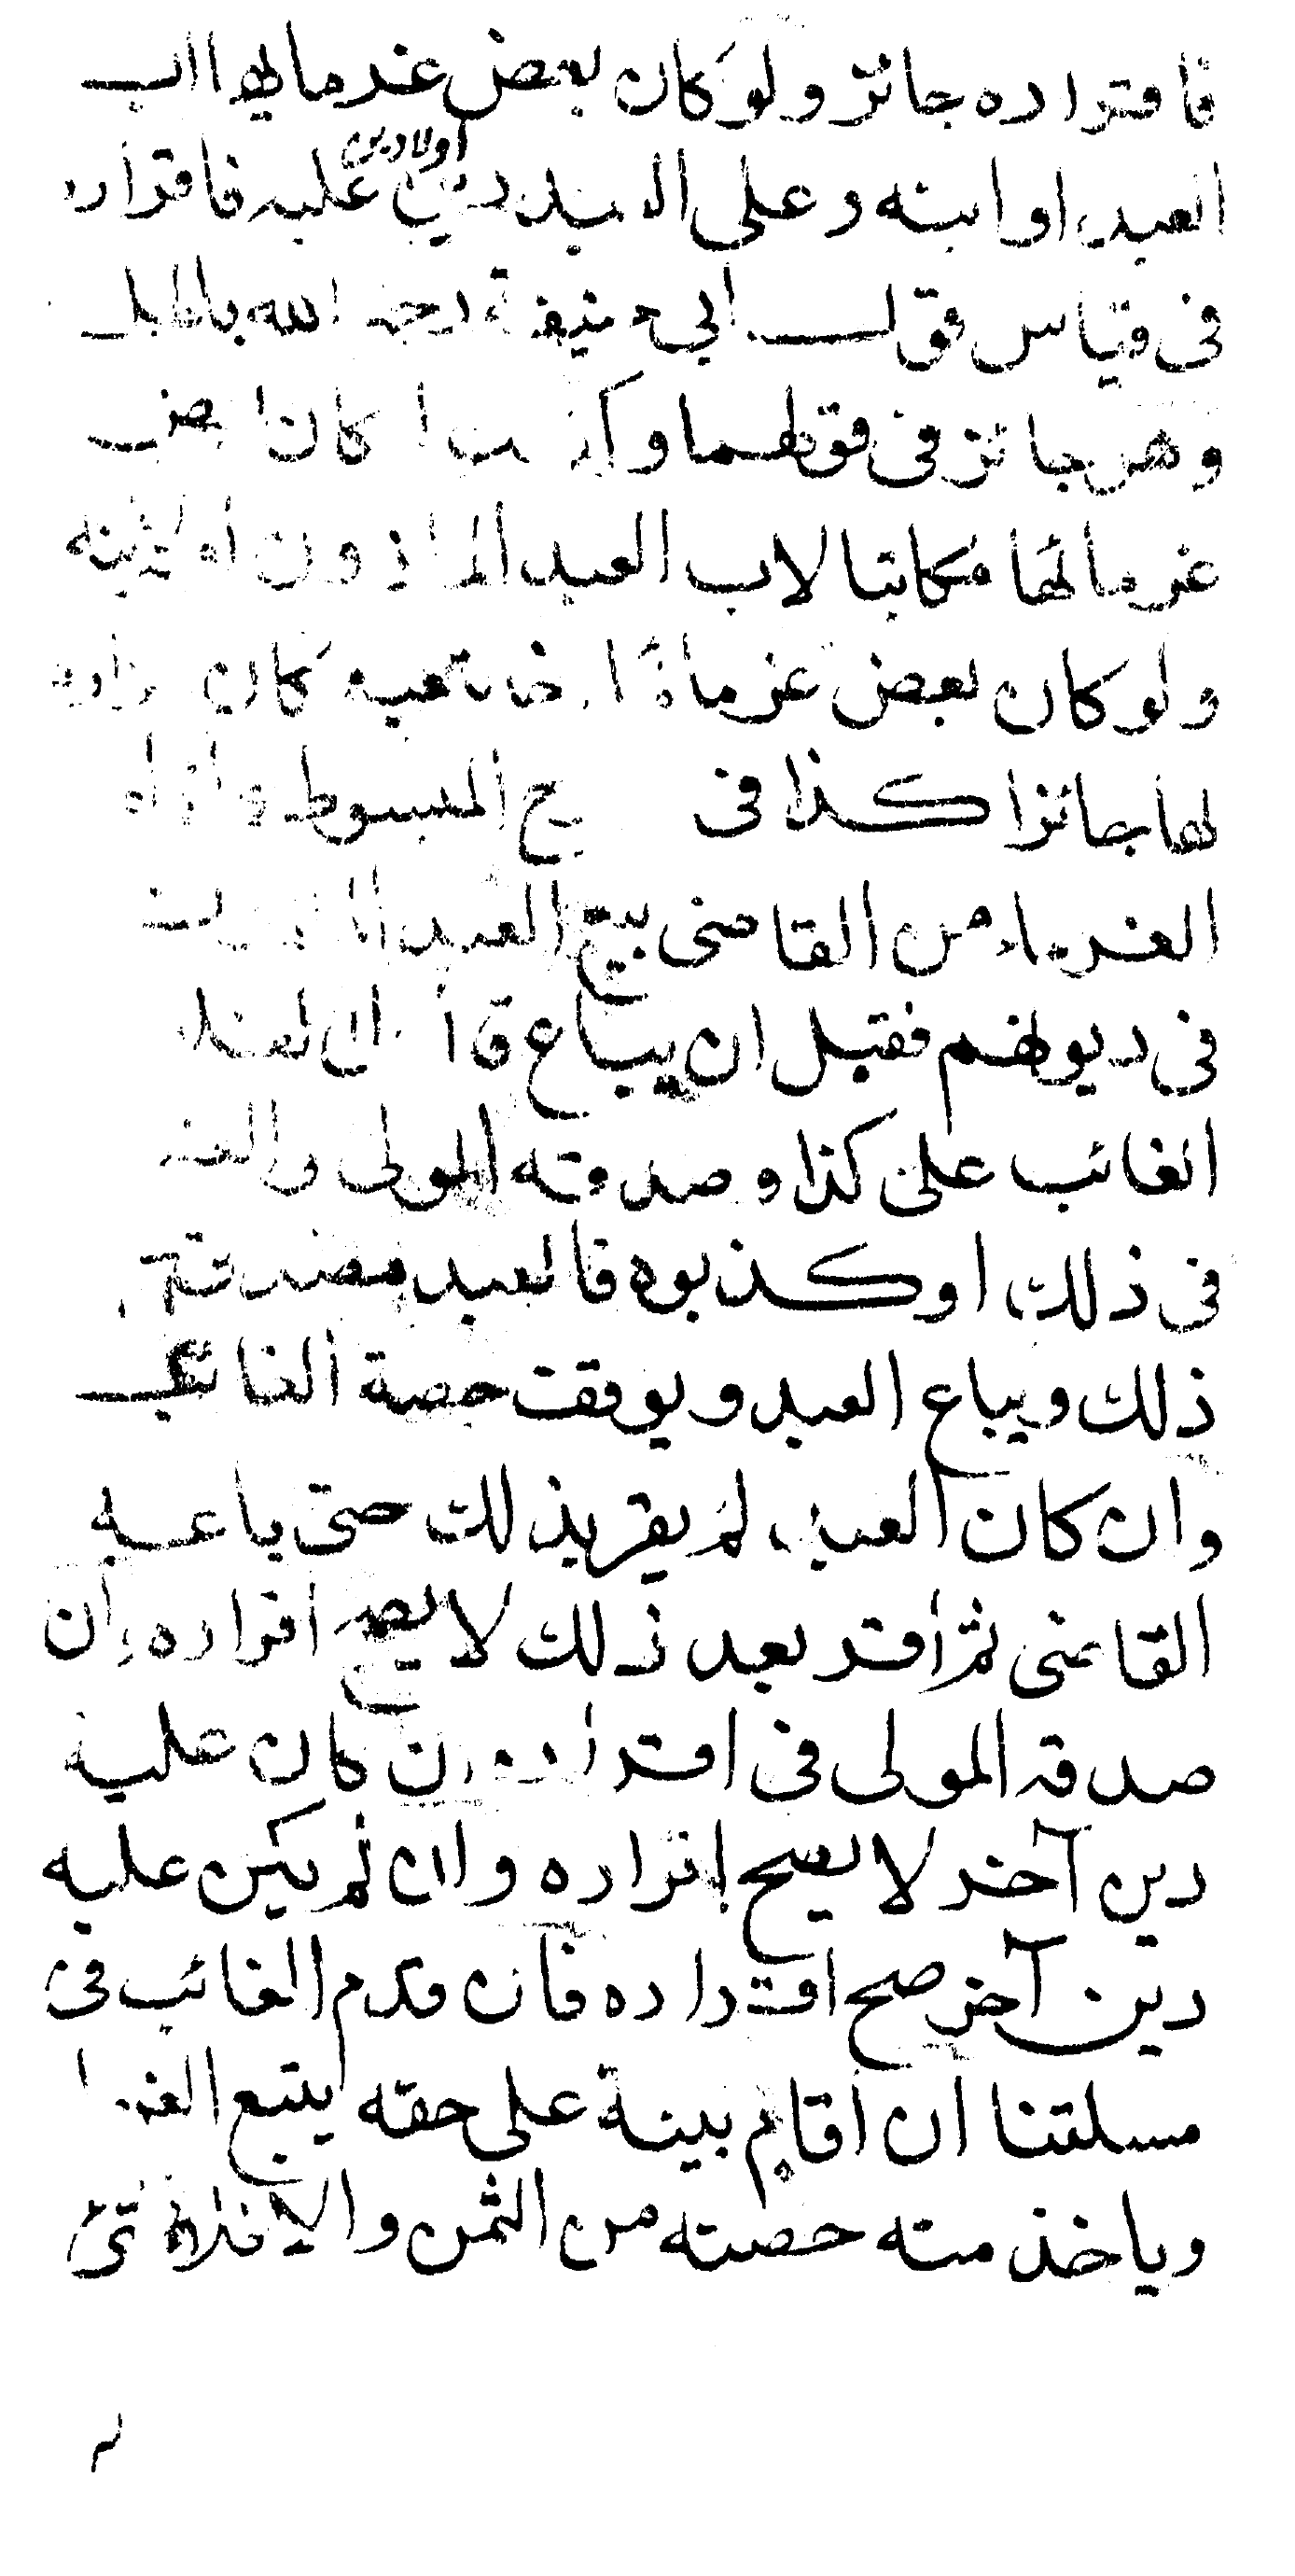 فاقراره جائز ولو كان بعض غرمائها اب
العبد او ابنه وعلى العبد دين اولا دين عليه فاقراره
فى قياس قول ابي حنيفة رحمه الله باطل
وهو جائز فى قولهما وكذلك اذا كان بعض
غرمائها مكاتبا لاب العبد المأذون او لابنه
ولو كان بعض غرمائها اخا لعبد كان اقراره
لها جائزا كذا فى المبسوط واذا
الغرماء من القاضى بيع العبد المأذون
فى ديونهم فقبل ان يباع قال ان لفلان
الغائب على كذا وصدقه المولى والعبد
فى ذلك او كذبوه فالعبد مصدق فى
ذلك ويباع العبد ويوقف حصة الغائب
وان كان العبد لم يقر بذلك حتى باعه
القاضى ثم أقر بعد ذلك لا يصح اقراره وان
صدقه المولى فى اقراره وان كان عليه
دين آخر لا يصح اقراره وان لم يكن عليه
دين آخر صح اقراره فان قدم الغائب فى
مسلتنا ان أقام بينة على حقه يتبع الغرماء
وياخذ منه حصته من الثمن والا فلا شئ
له